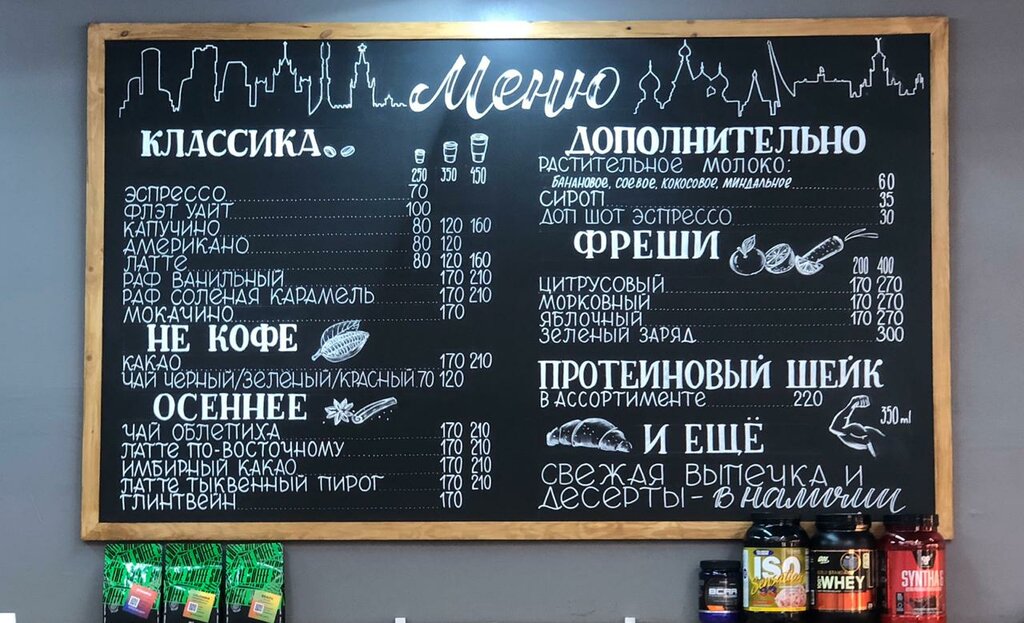 Меню
КЛАССИКА
250 350 450
ЭСПРЕССО 70
ФЛЭТ УАЙТ 100
КАПУЧИНО 80 120 160
АМЕРИКАНО 80 120
ЛАТТЕ 80 120 160
РАФ ВАНИЛЬНЫЙ 170 210
РАФ СОЛЕНАЯ КАРАМЕЛЬ 170 210
МОКАЧИНО 170
НЕ КОФЕ
КАКАО 170 210
ЧАЙ ЧЕРНЫЙ/ЗЕЛЕНЫЙ/КРАСНЫЙ 70 120
ОСЕННЕЕ
ЧАЙ ОБЛЕПИХА 170 210
ЛАТТЕ ПО-ВОСТОЧНОМУ 170 210
ИМБИРНЫЙ КАКАО 170 210
ЛАТТЕ ТЫКВЕННЫЙ ПИРОГ 170 210
ГЛИНТВЕЙН 170
ДОПОЛНИТЕЛЬНО
РАСТИТЕЛЬНОЕ МОЛОКО:
БАНАНОВОЕ, СОЕВОЕ, КОКОСОВОЕ, МИНДАЛЬНОЕ 60
СИРОП 35
ДОП ШОТ ЭСПРЕССО 30
ФРЕШИ
200 400
ЦИТРУСОВЫЙ 170 270
МОРКОВНЫЙ 170 270
ЯБЛОЧНЫЙ 170 270
ЗЕЛЕНЫЙ ЗАРЯД 300
ПРОТЕИНОВЫЙ ШЕЙК
В АССОРТИМЕНТЕ 220
350 ml
И ЕЩЁ
СВЕЖАЯ ВЫПЕЧКА И
ДЕСЕРТЫ - в наличии
BCAA
ISO
Sensation
WHEY
BSN
SYNTHA6